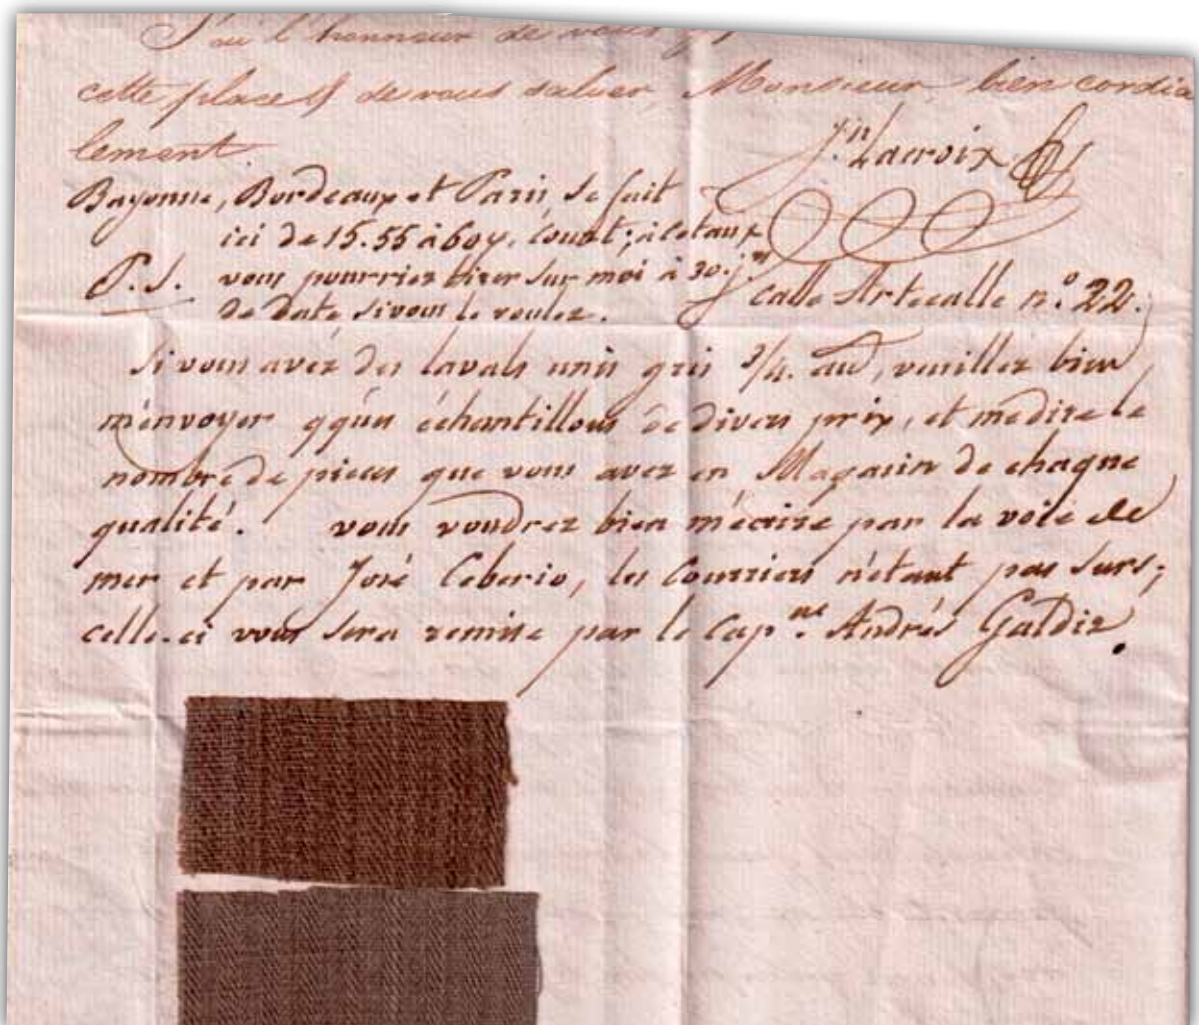 J'ai l'honneur de vous
cette place & de vous saluer, Monsieur, bien cordia
lement.
Jn Lacroix
Bayonne, Bordeaux et Paris, se fait
ici de 15.55 à 60 j. Court; à ce taux
P.S. vous pourriez tirer sur moi à 30. jrs
de date si vous le voulez.
Calle Artecalle n.º 22.
Si vous avéz des lavals unis gris 3/4. aud, veuillez bien
m'envoyer qqu'es échantillons de divers prix, et me dire le
nombre de pieces que vous avez en Magasin de chaque
qualité. vous voudrez bien m'écrire par la voie de
mer et par José Ceberio, les Courriers n'etant pas surs;
celle-ci vous sera remise par le Capne. Andrés Galdiz.